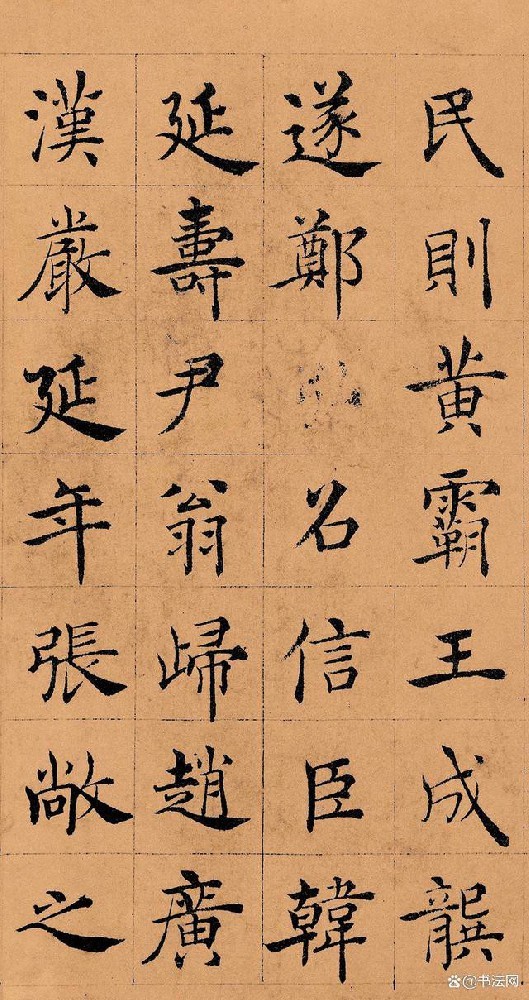 民則黄霸王成龔
遂鄭召信臣韓
延壽尹翁歸趙廣
漢嚴延年張敞之
@书法网